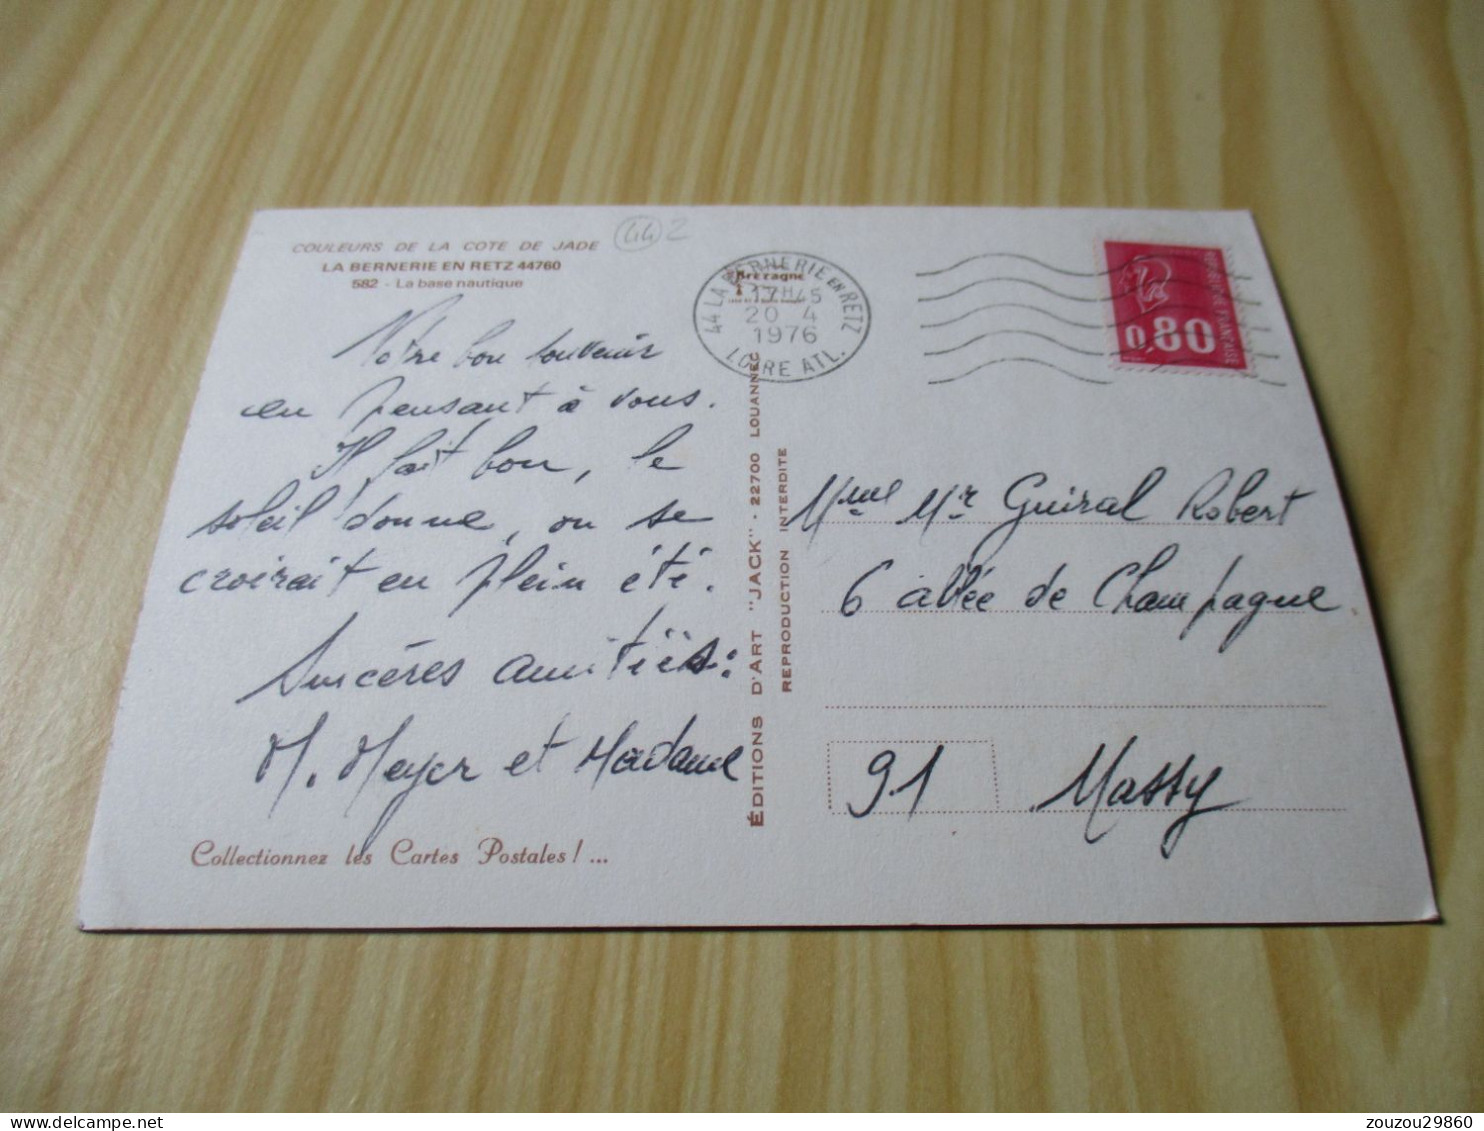 COULEURS DE LA COTE DE JADE
44 2
LA BERNERIE EN RETZ 44760
582 - La base nautique
Notre bon souvenir
en pensant à vous.
Il fait bon, le
soleil donne, on se
croirait en plein été.
Sincéres amitiés.
M. Meyer et Madame
Collectionnez les Cartes Postales ! ...
ÉDITIONS D'ART "JACK" - 22700 LOUANNEC
REPRODUCTION INTERDITE
Bretagne
44 LA BERNERIE EN RETZ
17H45
20 - 4
1976
LOIRE ATL.
REPUBLIQUE FRANÇAISE
0,80
Mme Mr Guiral Robert
6 allée de Champagne
91 Massy
zouzou29860